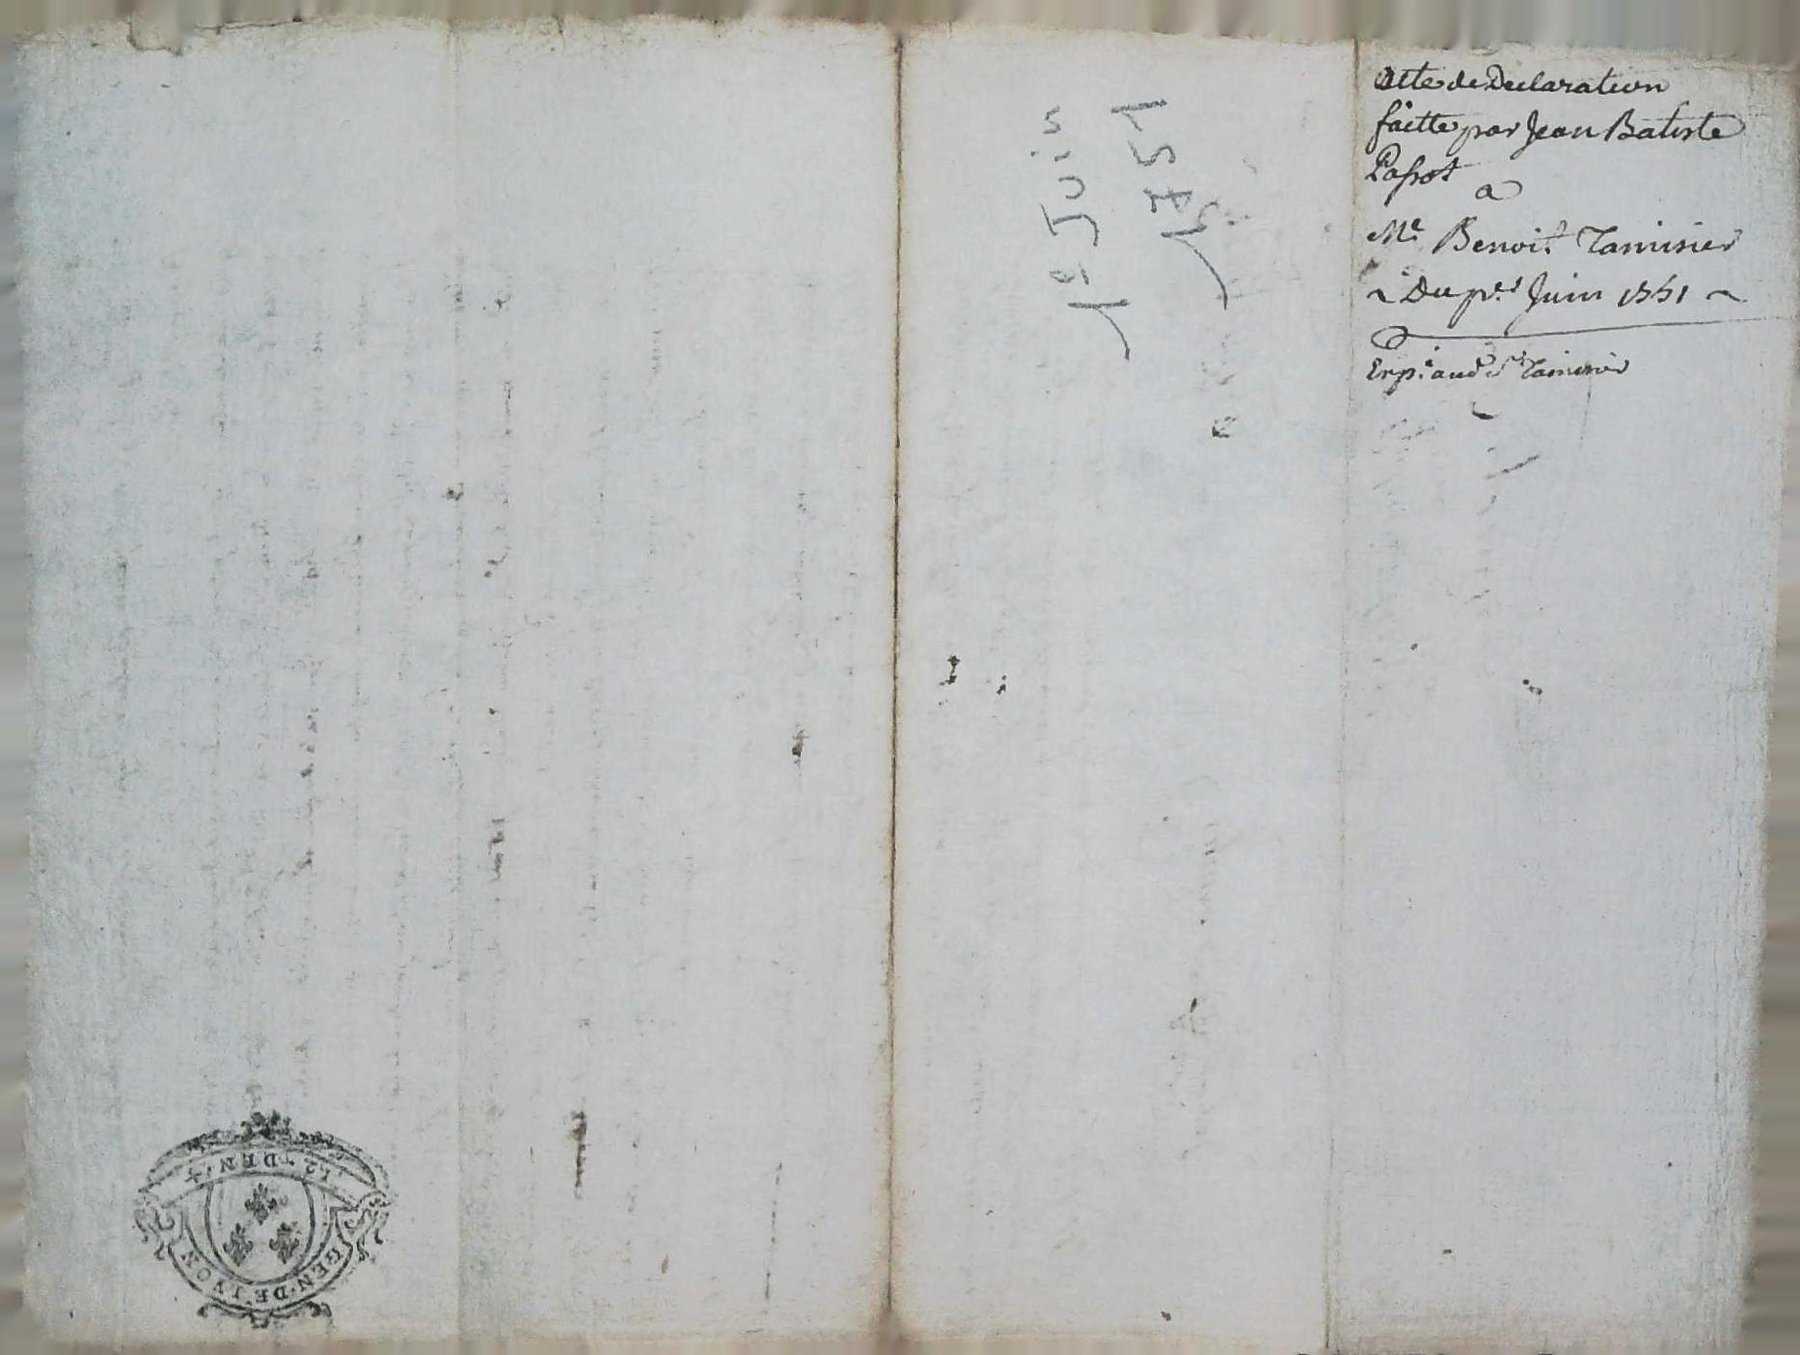 Acte de Declaration
faitte par Jean Batiste
Passot
a
Me Benoit Tamisier
Du per Juin 1751
Exp. aud. Sr Tamisier
1e Juin
1751
12 DEN.
GEN. DE LYON